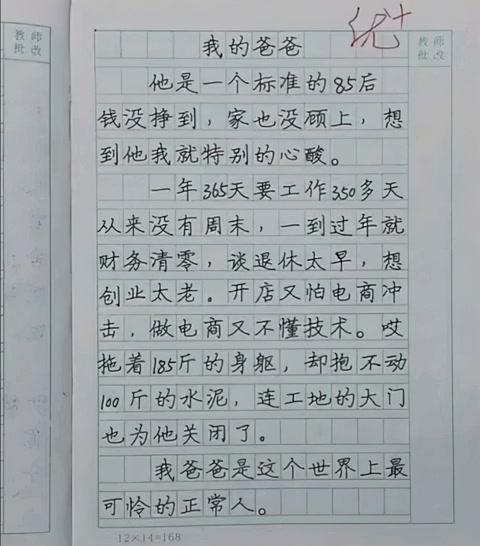 优+
教师
批改
教师
批改
我的爸爸
他是一个标准的85后
钱没挣到，家也没顾上，想
到他我就特别的心酸。
一年365天要工作350多天
从来没有周末，一到过年就
财务清零，谈退休太早，想
创业太老。开店又怕电商冲
击，做电商又不懂技术。哎
拖着185斤的身躯，却抱不动
100斤的水泥，连工地的大门
也为他关闭了。
我爸爸是这个世界上最
可怜的正常人。
12×14=168